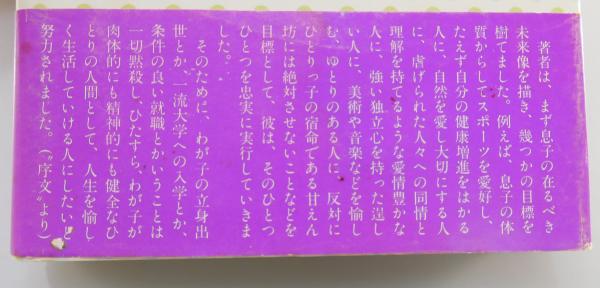 著者は、まず息子の在るべき
未来像を描き、幾つかの目標を
樹てました。例えば、息子の体
質からしてスポーツを愛好し、
たえず自分の健康増進をはかる
人に、自然を愛し大切にする人
に、虐げられた人々への同情と
理解を持てるような愛情豊かな
人に、強い独立心を持った逞し
い人に、美術や音楽などを愉し
む、ゆとりのある人に、反対に
ひとりっ子の宿命である甘えん
坊には絶対させないことなどを
目標として、彼は、そのひとつ
ひとつを忠実に実行していきま
した。
そのために、わが子の立身出
世とか、一流大学への入学とか、
条件の良い就職とかいうことは
一切黙殺し、ひたすら、わが子が
肉体的にも精神的にも健全なひ
とりの人間として、人生を愉し
く生活していける人にしたいと
努力されました。（〝序文〟より）